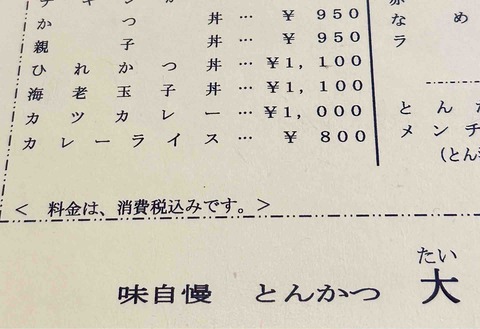 かつ丼… ¥ 950
親子丼… ¥ 950
ひれかつ丼… ¥1,100
海老玉子丼… ¥1,100
カツカレー… ¥1,000
カレーライス… ¥ 800
なめ
ラ
とん
メンチ
(とん
< 料金は、消費税込みです。>
たい
味自慢 とんかつ 大